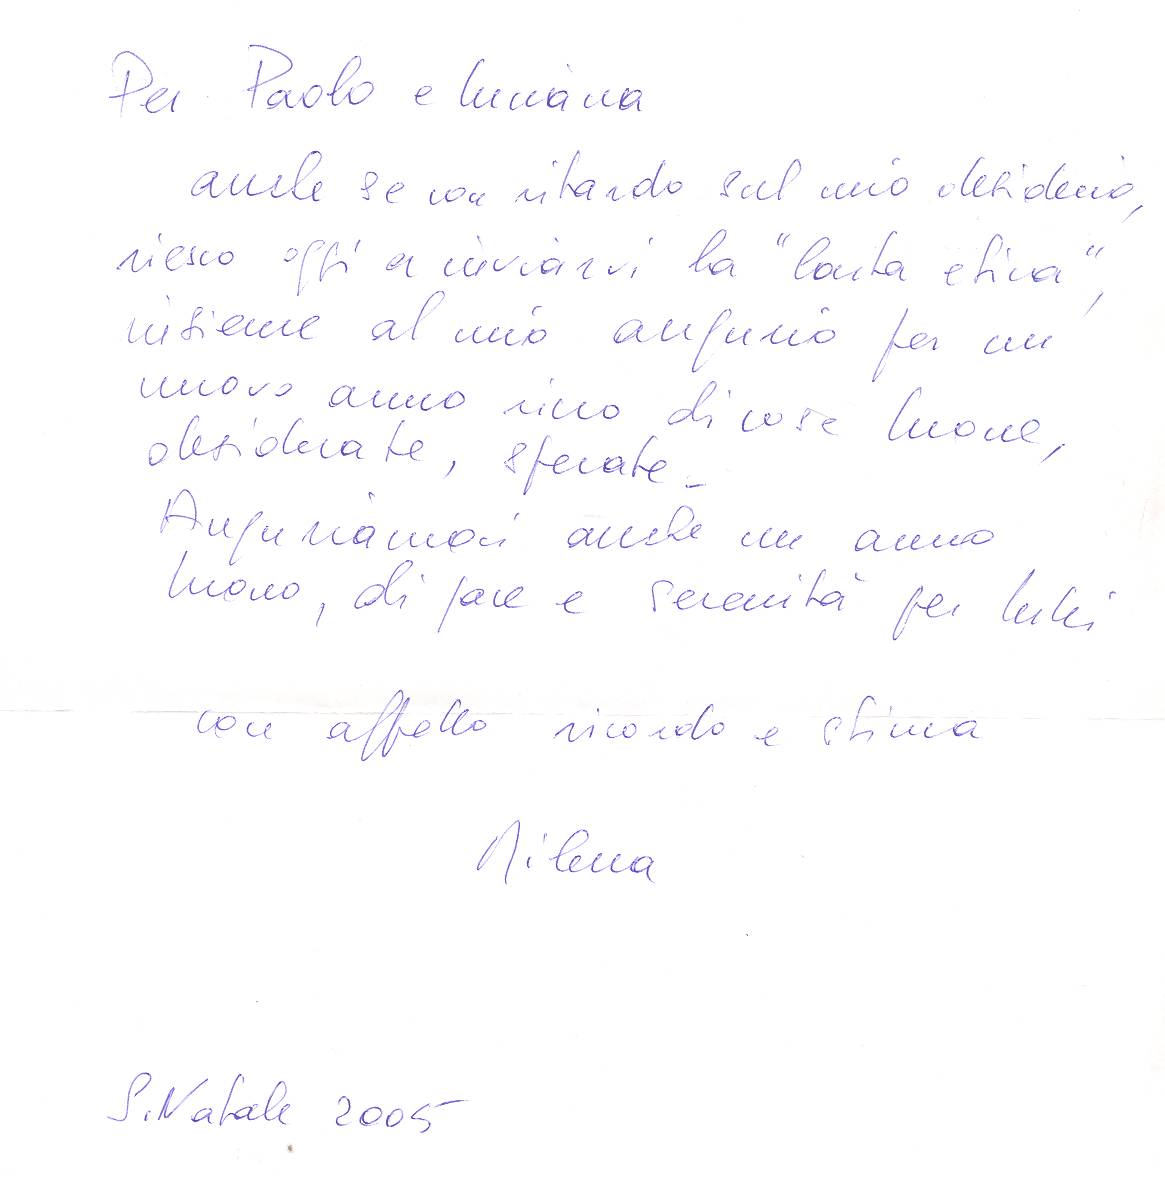 Per Paolo e Luciana
anche se con ritardo sul mio desiderio,
riesco oggi a inviarvi la "Carta etica",
insieme al mio augurio per un
nuovo anno ricco di cose buone,
desiderate, sperate_
Auguriamoci anche un anno
buono, di pace e serenità per tutti
con affetto ricordo e stima
Milena
S. Natale 2005